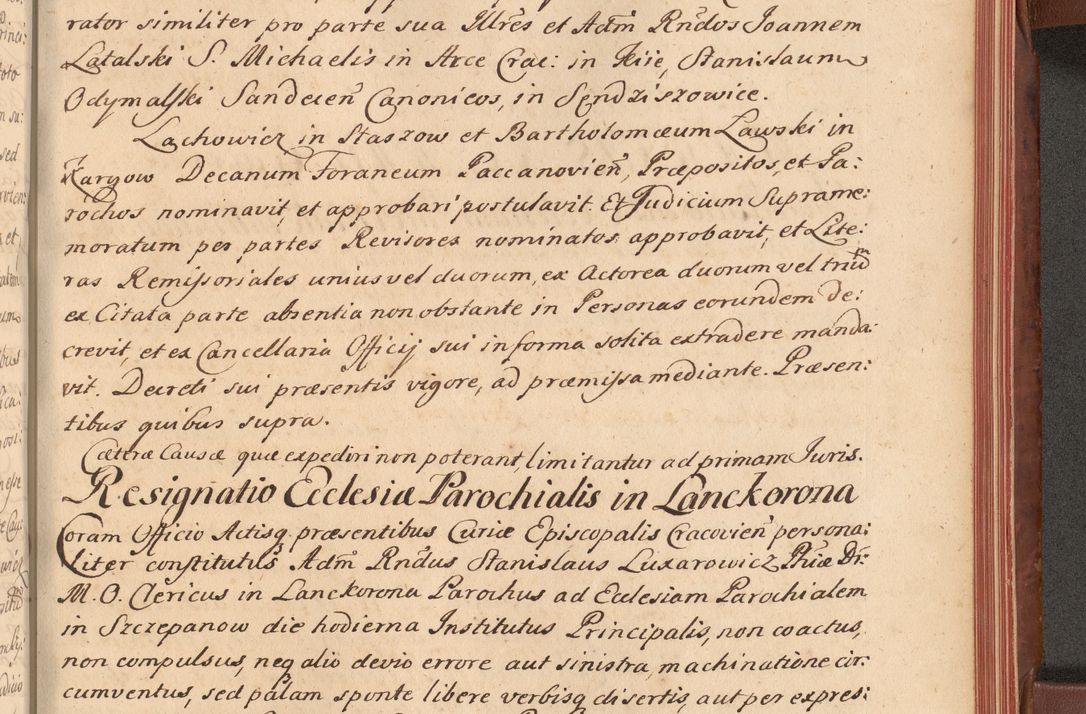 rator similiter pro parte sua Illres et Adm Rndos Joannem
Latalski S. Michaelis in Arce Crac: in Kiie, Stanislaum
Odymalski Sandecen Canonicos, in Sendziszowice.
Lachowicz in Staszow et Bartholomæum Lawski in
Kargow Decanum Foraneum Paccanovien, Præpositos, et Pa:
rochos nominavit, et approbari postulavit. Et Judicium Suprame:
moratum per partes Revisores nominatos approbavit, et Lite:
ras Remissoriales unius vel duorum, ex Actorea duorum vel trium
ex Citata parte absentia non obstante in Personas eorundem de:
crevit, et ex Cancellaria Officij sui in forma solita extradere manda:
vit. Decreti sui præsentis vigore, ad præmissa mediante. Præsen:
tibus quibus supra.
Cæteræ Causæ quæ expediri non poterant, limitantur ad primam Juris.
Resignatio Ecclesiæ Parochialis in Lanckorona
Coram Officio Actisq præsentibus Curiæ Episcopalis Cracovien persona:
liter constitutus Adm Rndus Stanislaus Luxarowicz Phiæ Dr:
M. O. Clericus in Lanckorona Parochus ad Ecclesiam Parochialem
in Szczepanow die hodierna Institutus Principalis, non coactus,
non compulsus, neq alio devio errore aut sinistra, machinatione cir:
cumventus, sed palam sponte libere verbisq disertis, aut per expres: